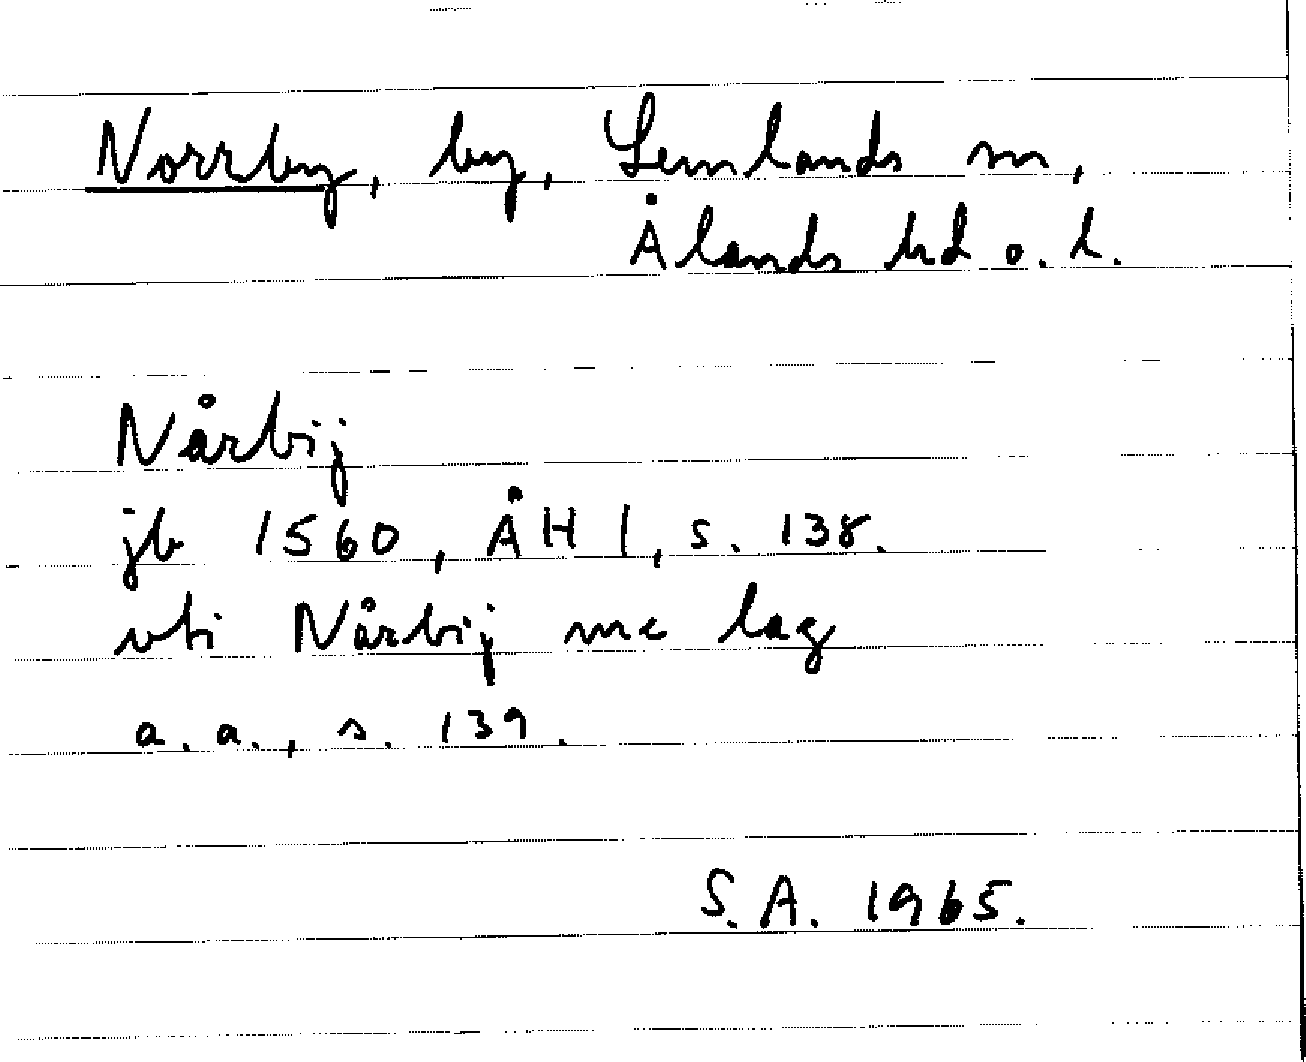 Norrby, by, Lemlands sn,
Ålands hd o. l.
Nårbij
jb 1560, ÅH I, s. 138.
vti Nårbij me lag
a. a., s. 139.
S. A. 1965.